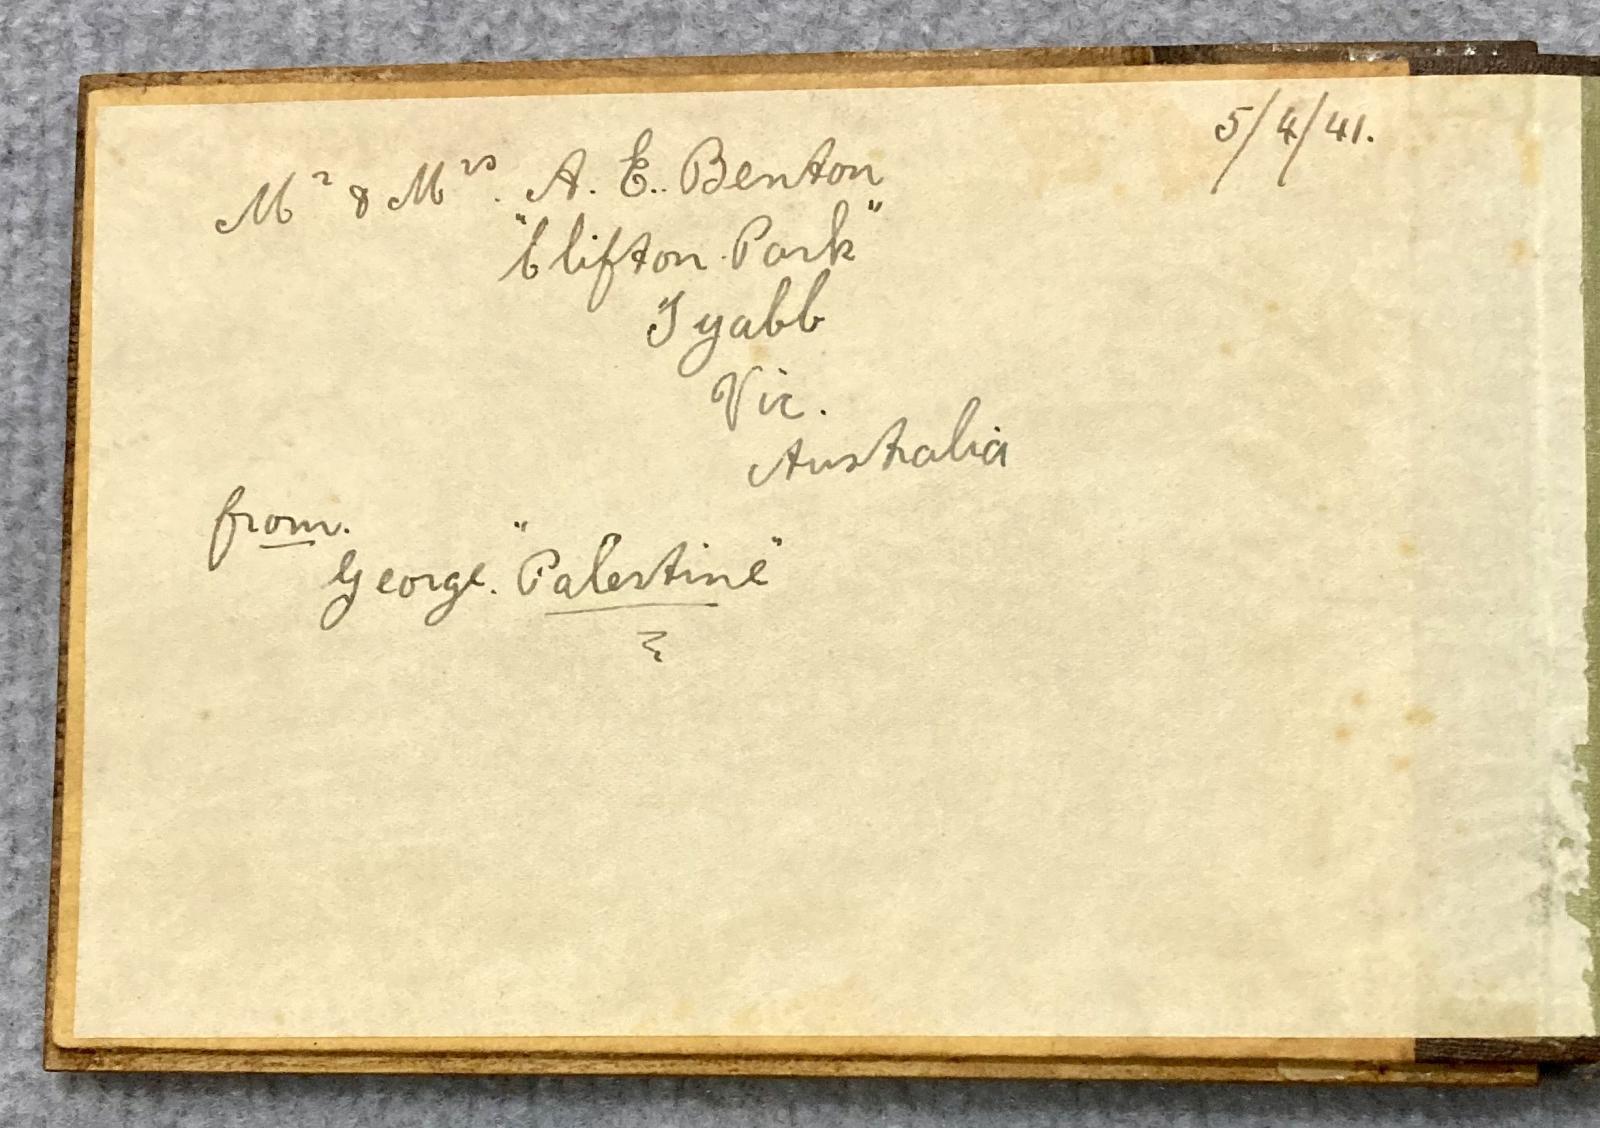 5/4/41.
Mr & Mrs. A. E. Benton
"Clifton Park"
Tyabb
Vic.
Australia
from.
George. "Palestine"